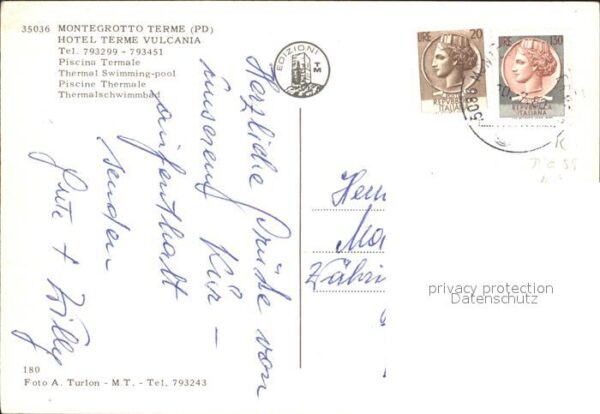 35036 MONTEGROTTO TERME (PD)
HOTEL TERME VULCANIA
Tel. 793299 - 793451
Piscina Termale
Thermal Swimming-pool
Piscine Thermale
Thermalschwimmbad
EDIZIONI
TM
LIRE 20
REPUBBLICA
ITALIANA
LIRE 130
REPUBBLICA
ITALIANA
Herzliche Grüße von
unserem Kur-
aufenthalt
senden
Grete + Willy
Herrn
Ma
Zähri
privacy protection
Datenschutz
180
Foto A. Turlon - M.T. - Tel. 793243